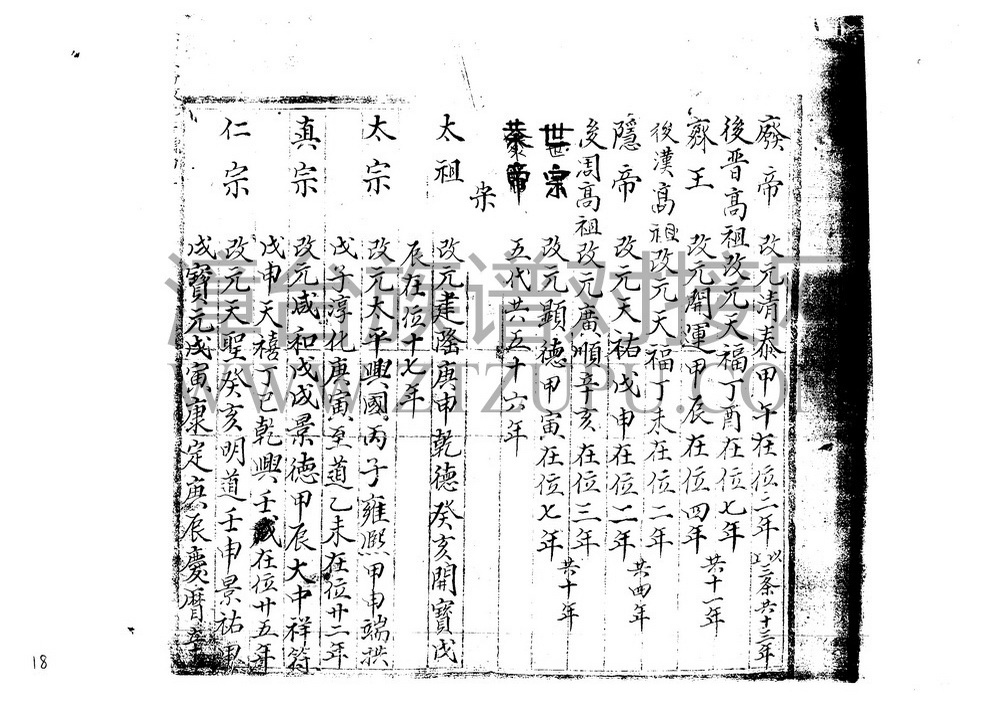 廢帝 改元清泰甲午在位二年 以上三条共十三年
後晋高祖改元天福丁酉在位七年
齊王 改元開運甲辰在位四年 共十一年
後漢高祖改元天福丁未在位二年
隱帝 改元天祐戊申在位二年 共四年
後周高祖改元廣順辛亥在位三年
世宗 改元顯德甲寅在位七年 共十年
恭帝 五代共五十六年
宋
太祖 改元建隆庚申乾德癸亥開寶戊
辰在位十七年
太宗 改元太平興國丙子雍熙甲申端拱
戊子淳化庚寅至道乙未在位廿二年
真宗 改元咸和戊戌景德甲辰大中祥符
戊申天禧丁巳乾興壬戌在位廿五年
仁宗 改元天聖癸亥明道壬申景祐甲
戌寶元戊寅康定庚辰慶曆
漳台族谱对接
WWW.ZTZUPU.COM
18